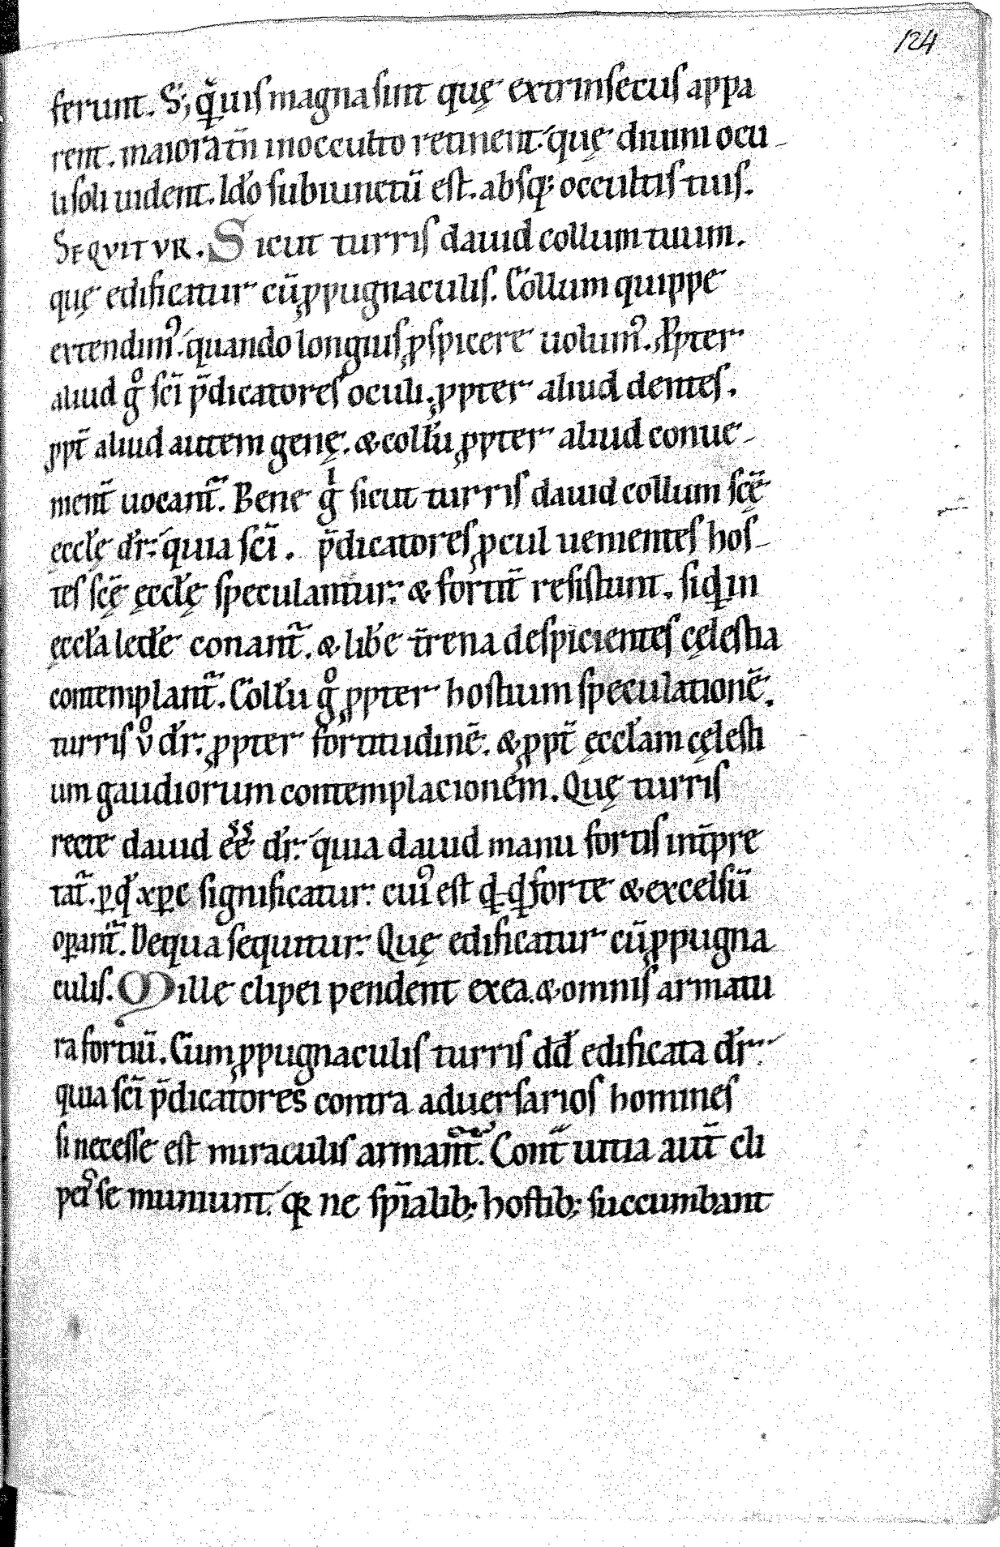 124
ferunt. S; q̄uis magna sint quę extrinsecus appa
rent. maiora tn̄ in occulto retinent. que diuini ocu-
li soli uident. Ideo subiunctū est. absq; occultis tuis.
SEQVITVR. Sicut turris dauid collum tuum.
quę edificatur cū ꝓpugnaculis. Collum quippe
extendim᾽. quando longius ꝓspicere uolum᾽. Ꝓpter
aliud gͦ sci̅ p̄dicatores oculi. ꝓpter aliud dentes.
ꝓpt̄ aliud autem genę. & collū ꝓpter aliud conue-
nient̄ uocant᷑. Bene gͥ sicut turris dauid collum scę̄
eccłę dr̄. quia sci̅. p̄dicatores ꝓcul uenientes hos-
tes scę̄ ęccłę speculantur. & fortit̄ resistunt. siqͥd in
ęccła ledere conant᷑. & libere t̄rena despicientes cęlestia
contemplant᷑. Collū gͦ ꝓpter hostium speculationē.
turris ůͦ dr̄. ꝓpter fortitudinē. & ꝓpt̄ ęccłam cęlesti
um gaudiorum contemplacionem. Quę turris
recte dauid eē᷑ dr̄. quia dauid manu fortis int̄pre
tat᷑. ꝑ qd̄ xp̄c significatur. cui᾽ est qͥcqͥd forte & excelsū
oꝑant᷑. De qua sequitur. Quę edificatur cū ꝓpugna
culis. Mille clipei pendent ex ea. & omnis armatu
ra fortiū. Cum ꝓpugnaculis turris dd̄ edificata dr̄.
quia sci̅ p̄dicatores contra aduersarios homines
si necesse est miraculis armant᷑. Cont̄ uitia aut̄ cli
pei᾽ se muniunt. qꝛ ne spīalib; hostib; succumbant